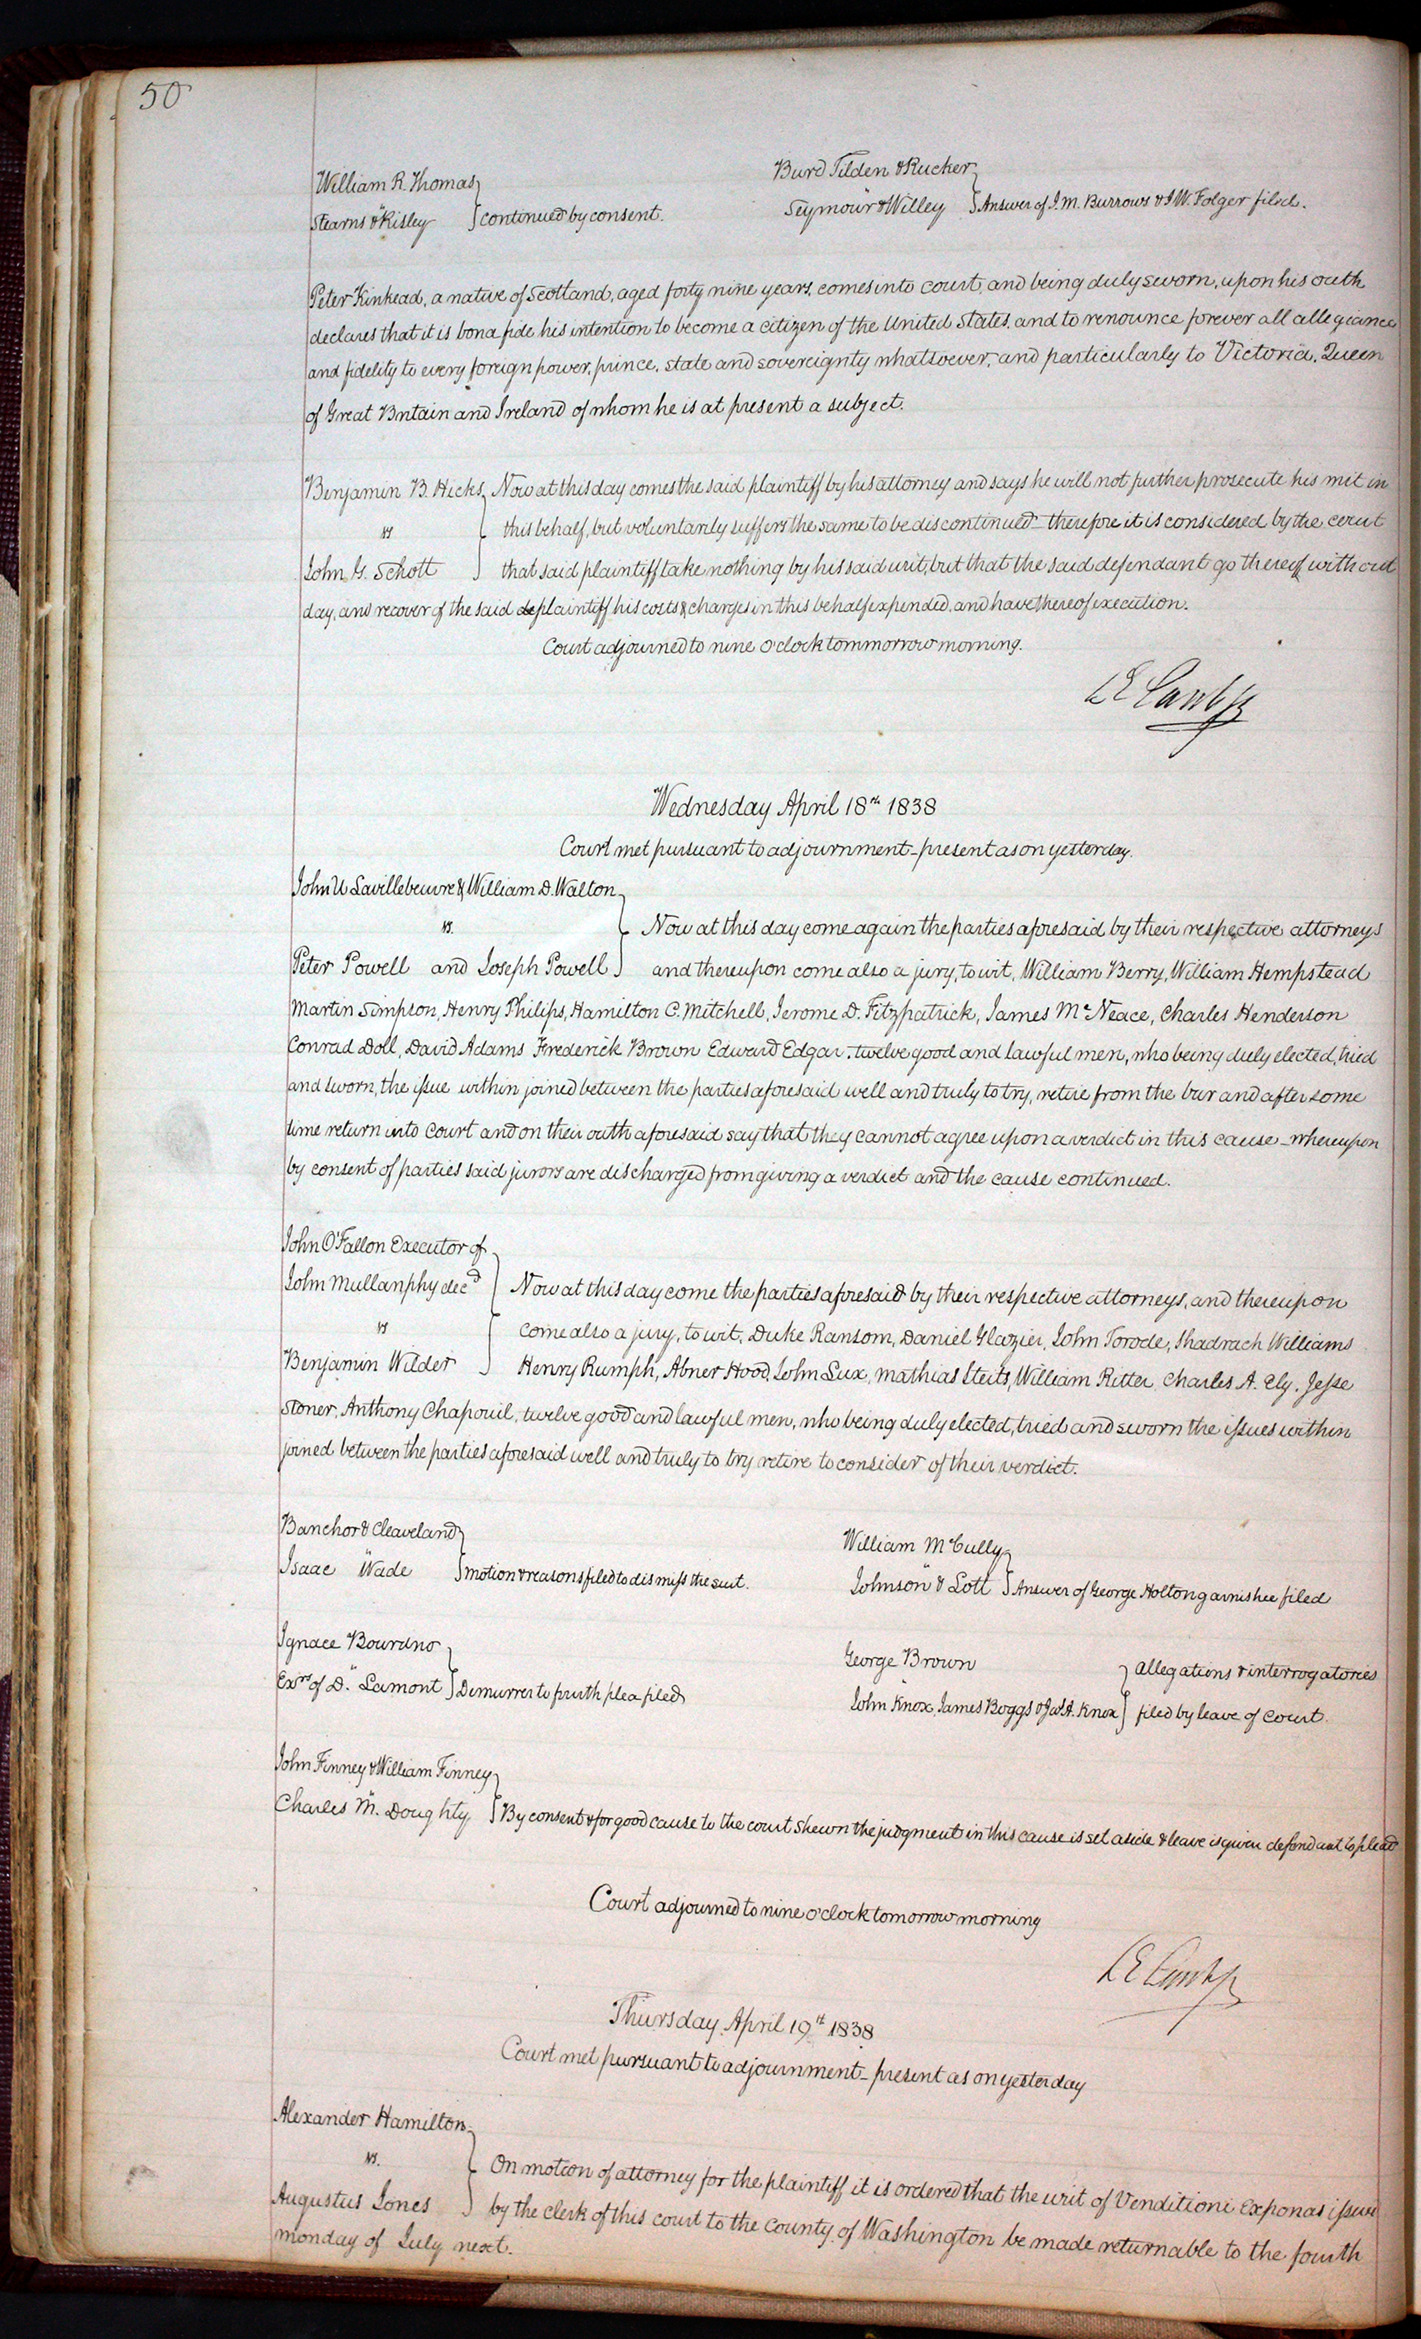 50
William R. Thomas
"
Stearns & Risley } continued by consent.
Burd Tilden & Rucker
"
Seymour & Willey } Answer of J. M. Burrows & J W. Folger filed.
Peter Kinkead, a native of Scotland, aged forty nine years, comes into court, and being duly sworn, upon his oath
declares that it is bona fide his intention to become a citizen of the United States, and to renounce forever all allegiance
and fidelity to every foreign power, prince, state and sovereignty whatsoever, and particularly to Victoria, Queen
of Great Britain and Ireland of whom he is at present a subject.
Benjamin B. Hicks } Now at this day comes the said plaintiff by his attorney and says he will not further prosecute his writ in
vs } this behalf, but voluntarily suffers the same to be discontinued - therefore it is considered by the court
John G. Schott } that said plaintiff take nothing by his said writ, but that the said defendant go thereof without
day, and recover of the said de plaintiff his costs & charges in this behalf expended, and have thereof execution.
Court adjourned to nine o'clock tommorrow morning.
Wednesday April 18th 1838
Court met pursuant to adjournment - present as on yesterday.
John U Lavillebeuvre & William D. Walton
vs. } Now at this day come again the parties aforesaid by their respective attorneys
Peter Powell and Joseph Powell } and thereupon come also a jury, to wit, William Berry, William Hempstead
Martin Simpson, Henry Philips, Hamilton C. Mitchell, Jerome D. Fitzpatrick, James McNeace, Charles Henderson
Conrad Doll, David Adams Frederick Brown Edward Edgar, twelve good and lawful men, who being duly elected, tried
and sworn, the issue within joined between the parties aforesaid well and truly to try, retire from the bar and after some
time return into court and on their oath aforesaid say that they cannot agree upon a verdict in this cause - whereupon
by consent of parties said jurors are discharged from giving a verdict and the cause continued.
John O'Fallon Executor of
John Mullanphy decd } Now at this day come the parties aforesaid by their respective attorneys, and thereupon
vs } come also a jury, to wit, Duke Ransom, Daniel Glazier, John Torode, Shadrach Williams
Benjamin Wilder } Henry Rumph, Abner Hood, John Lux, Mathias Steits, William Ritter Charles A. Ely, Jesse
Stoner, Anthony Chapouil, twelve good and lawful men, who being duly elected, tried and sworn the issues within
joined between the parties aforesaid well and truly to try retire to consider of their verdict.
Banchor & Cleaveland
"
Isaac Wade } motion & reasons filed to dismiss the suit.
William McCully
"
Johnson & Lott } Answer of George Holton garnishee filed
Ignace Bourdno
"
Exrs of D. Lamont } Demurrer to fourth plea filed
George Brown } allegations & interrogatories
John Knox, James Boggs & Jas. A. Knox } filed by leave of court.
John Finney & William Finney
"
Charles M. Doughty } By consent & for good cause to the court shewn the judgment in this cause is set aside & leave is given defendant to plead
Court adjourned to nine o'clock tomorrow morning
Thursday, April 19th 1838
Court met pursuant to adjournment - present as on yesterday
Alexander Hamilton
vs. } On motion of attorney for the plaintiff it is ordered that the writ of Venditioni Exponas issued
Augustus Jones } by the clerk of this court to the county of Washington be made returnable to the fourth
monday of July next.